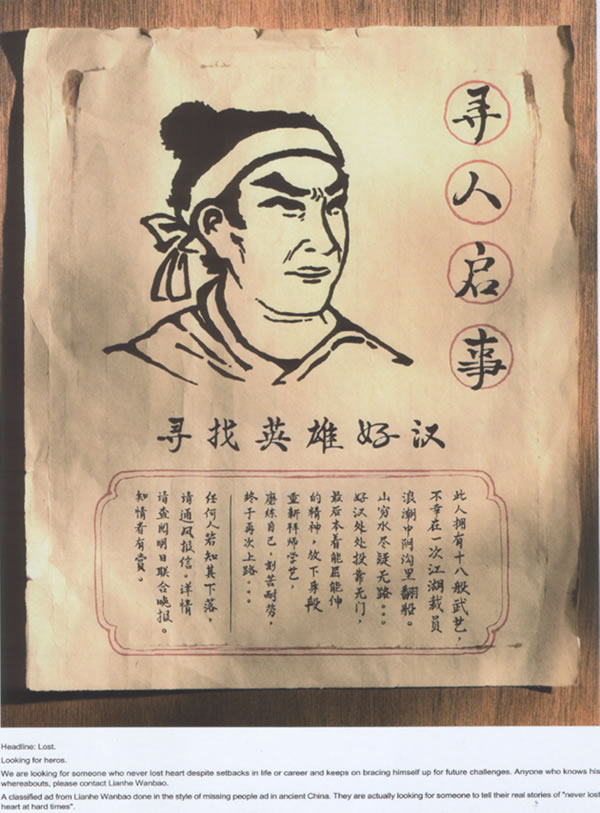 寻人启事
寻找英雄好汉
此人拥有十八般武艺，
不幸在一次江湖裁员
浪潮中阴沟里翻船。
山穷水尽疑无路...
好汉处处投靠无门，
最后本着能屈能伸
的精神，放下身段
重新拜师学艺，
磨练自己，刻苦耐劳，
终于再次上路...
任何人若知其下落，
请通风报信。详情
请查阅明日联合晚报。
知情者有赏。
Headline: Lost.
Looking for heros.
We are looking for someone who never lost heart despite setbacks in life or career and keeps on bracing himself up for future challenges. Anyone who knows his
whereabouts, please contact Lianhe Wanbao.
A classified ad from Lianhe Wanbao done in the style of missing people ad in ancient China. They are actually looking for someone to tell their real stories of "never lost
heart at hard times".